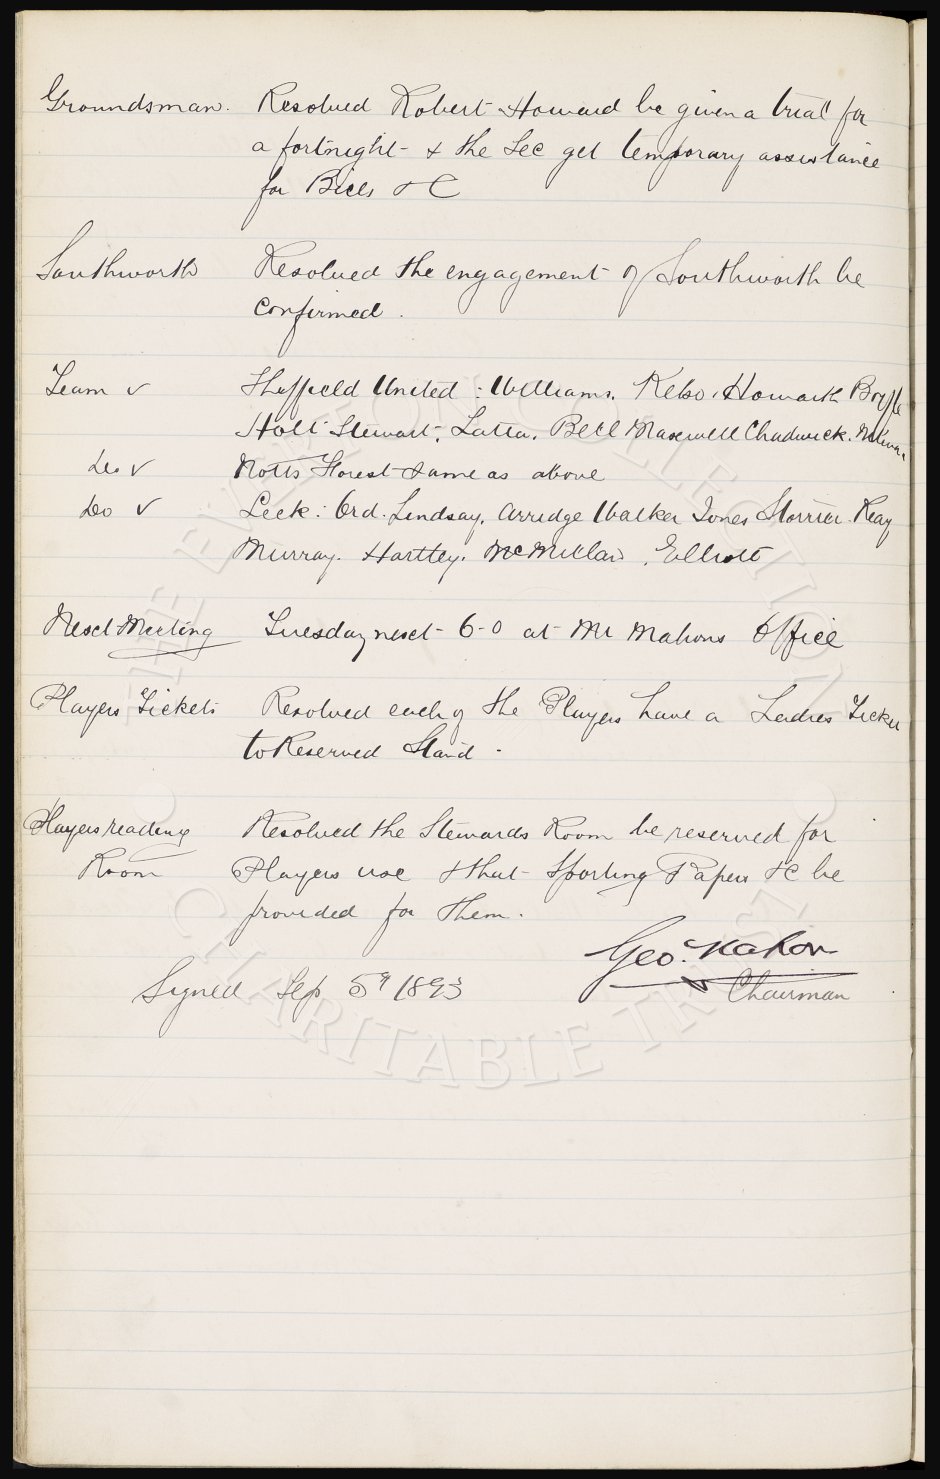 Groundsman. Resolved Robert Howard be given a trial for
a fortnight - & the Sec get temporary assistance
for Bills &C
Southworth Resolved the engagement of Southworth be
confirmed.
Team v Sheffield United : Williams. Kelso. Howarth Boyle
Holt Stewart. Latta. Bell Maxwell Chadwick.
Do v Notts Forest same as above
Do v Leek : Ord. Lindsay. Arridge Walker Jones Storrier. Keay
Murray. Hartley. McMillan. Elliott
Next Meeting Tuesday next - 6-0 at Mr Mahons Office
Players Tickets Resolved each of the Players have a Ladies Ticket
to Reserved Stand.
Players reading Resolved the Stewards Room be reserved for
Room Players use & that Sporting Papers &C be
provided for them.
Geo. Mahon
Signed Sep 5th 1893 Chairman
THE EVERTON COLLECTION
CHARITABLE TRUST